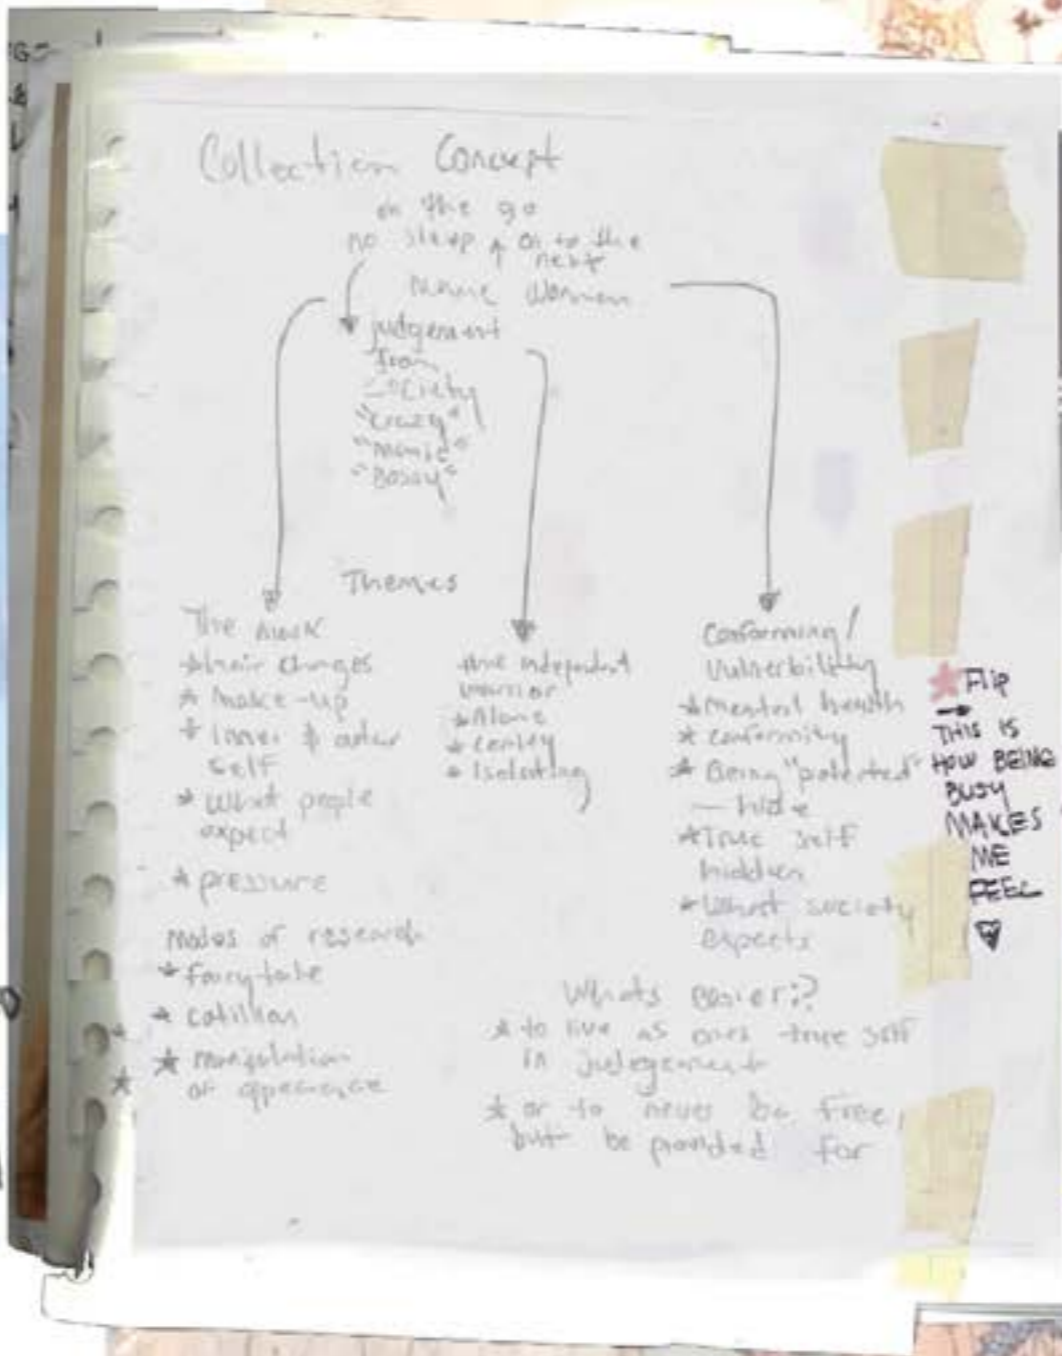 Collection Concept
on the go
no sleep ↑ on to the
next
Manic Woman
judgement
from
society
"Crazy"
"Manic"
"Bossy"
Themes
The Mask
* hair changes
* Make-up
* inner & outer
self
* What people
expect
* pressure
Modes of research
* fairytale
* cotillion
* manipulation
of appearance
the independent
warrior
* Alone
* Isolating
Conforming/
Vulnerbility
* Mental health
* conformity
* Being "potected"
— hide
* True self
hidden
* What society
expects
Whats easier:?
* to live as ones true self
in judegement
* or to never be free,
but be provided for
Flip
→
THIS IS
HOW BEING
BUSY
MAKES
ME
FEEL